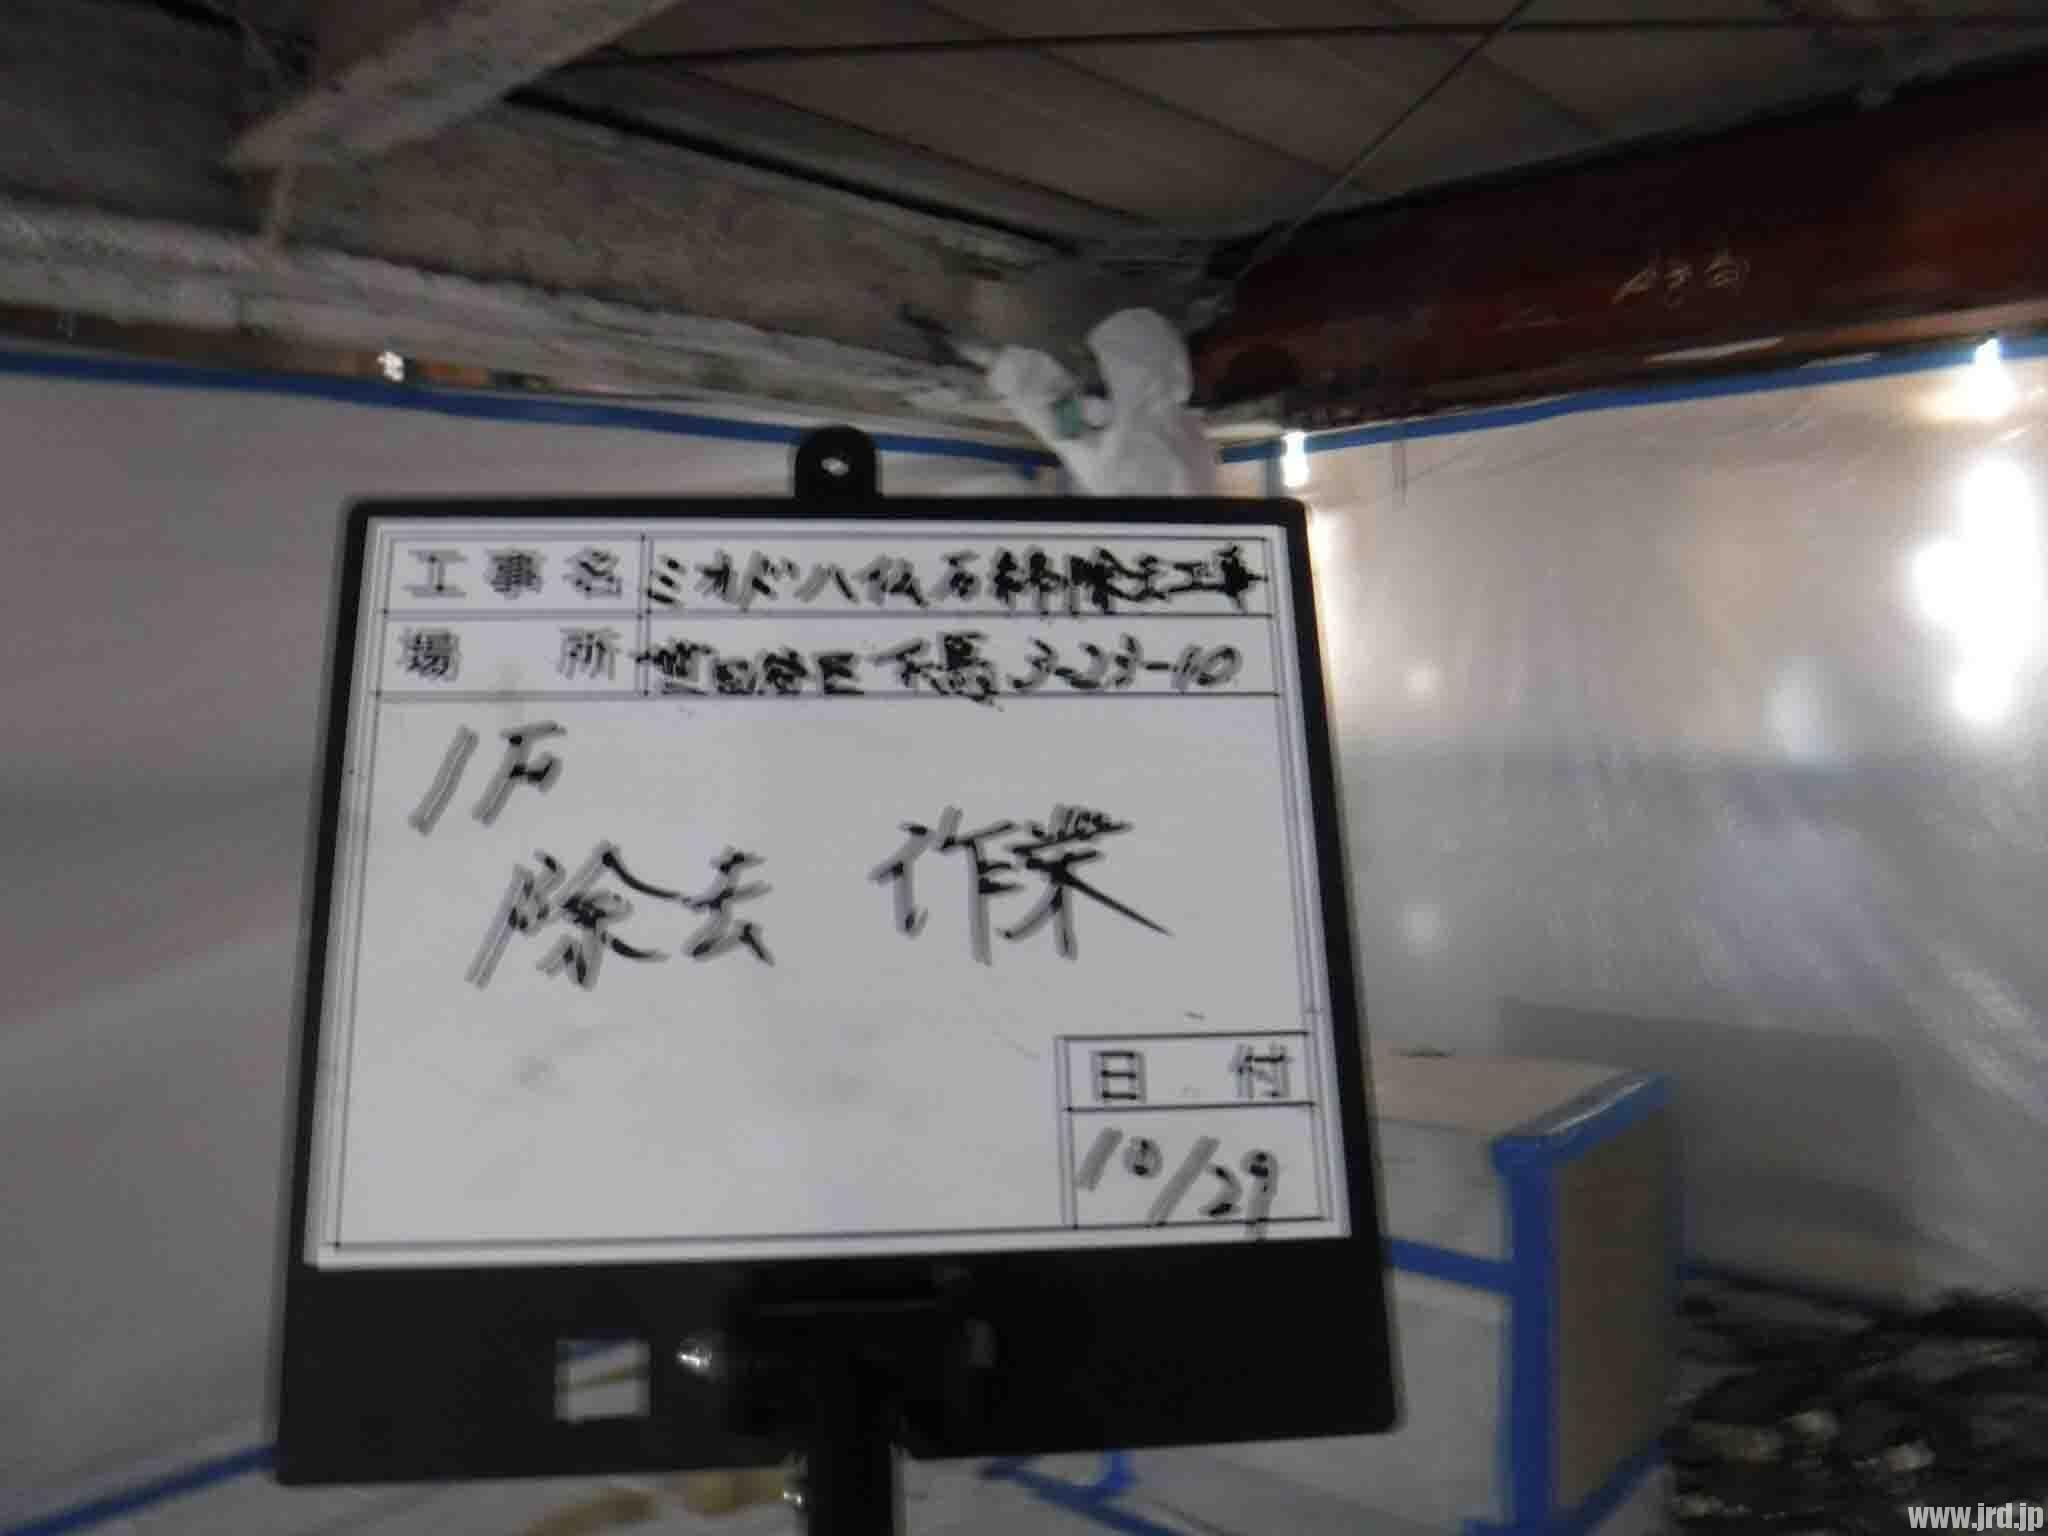 工事名 ミオドハ仏石綿除去工事
場所 世田谷区下馬3-23-10
1F
除去 作業
日付
10/29
www.jrd.jp